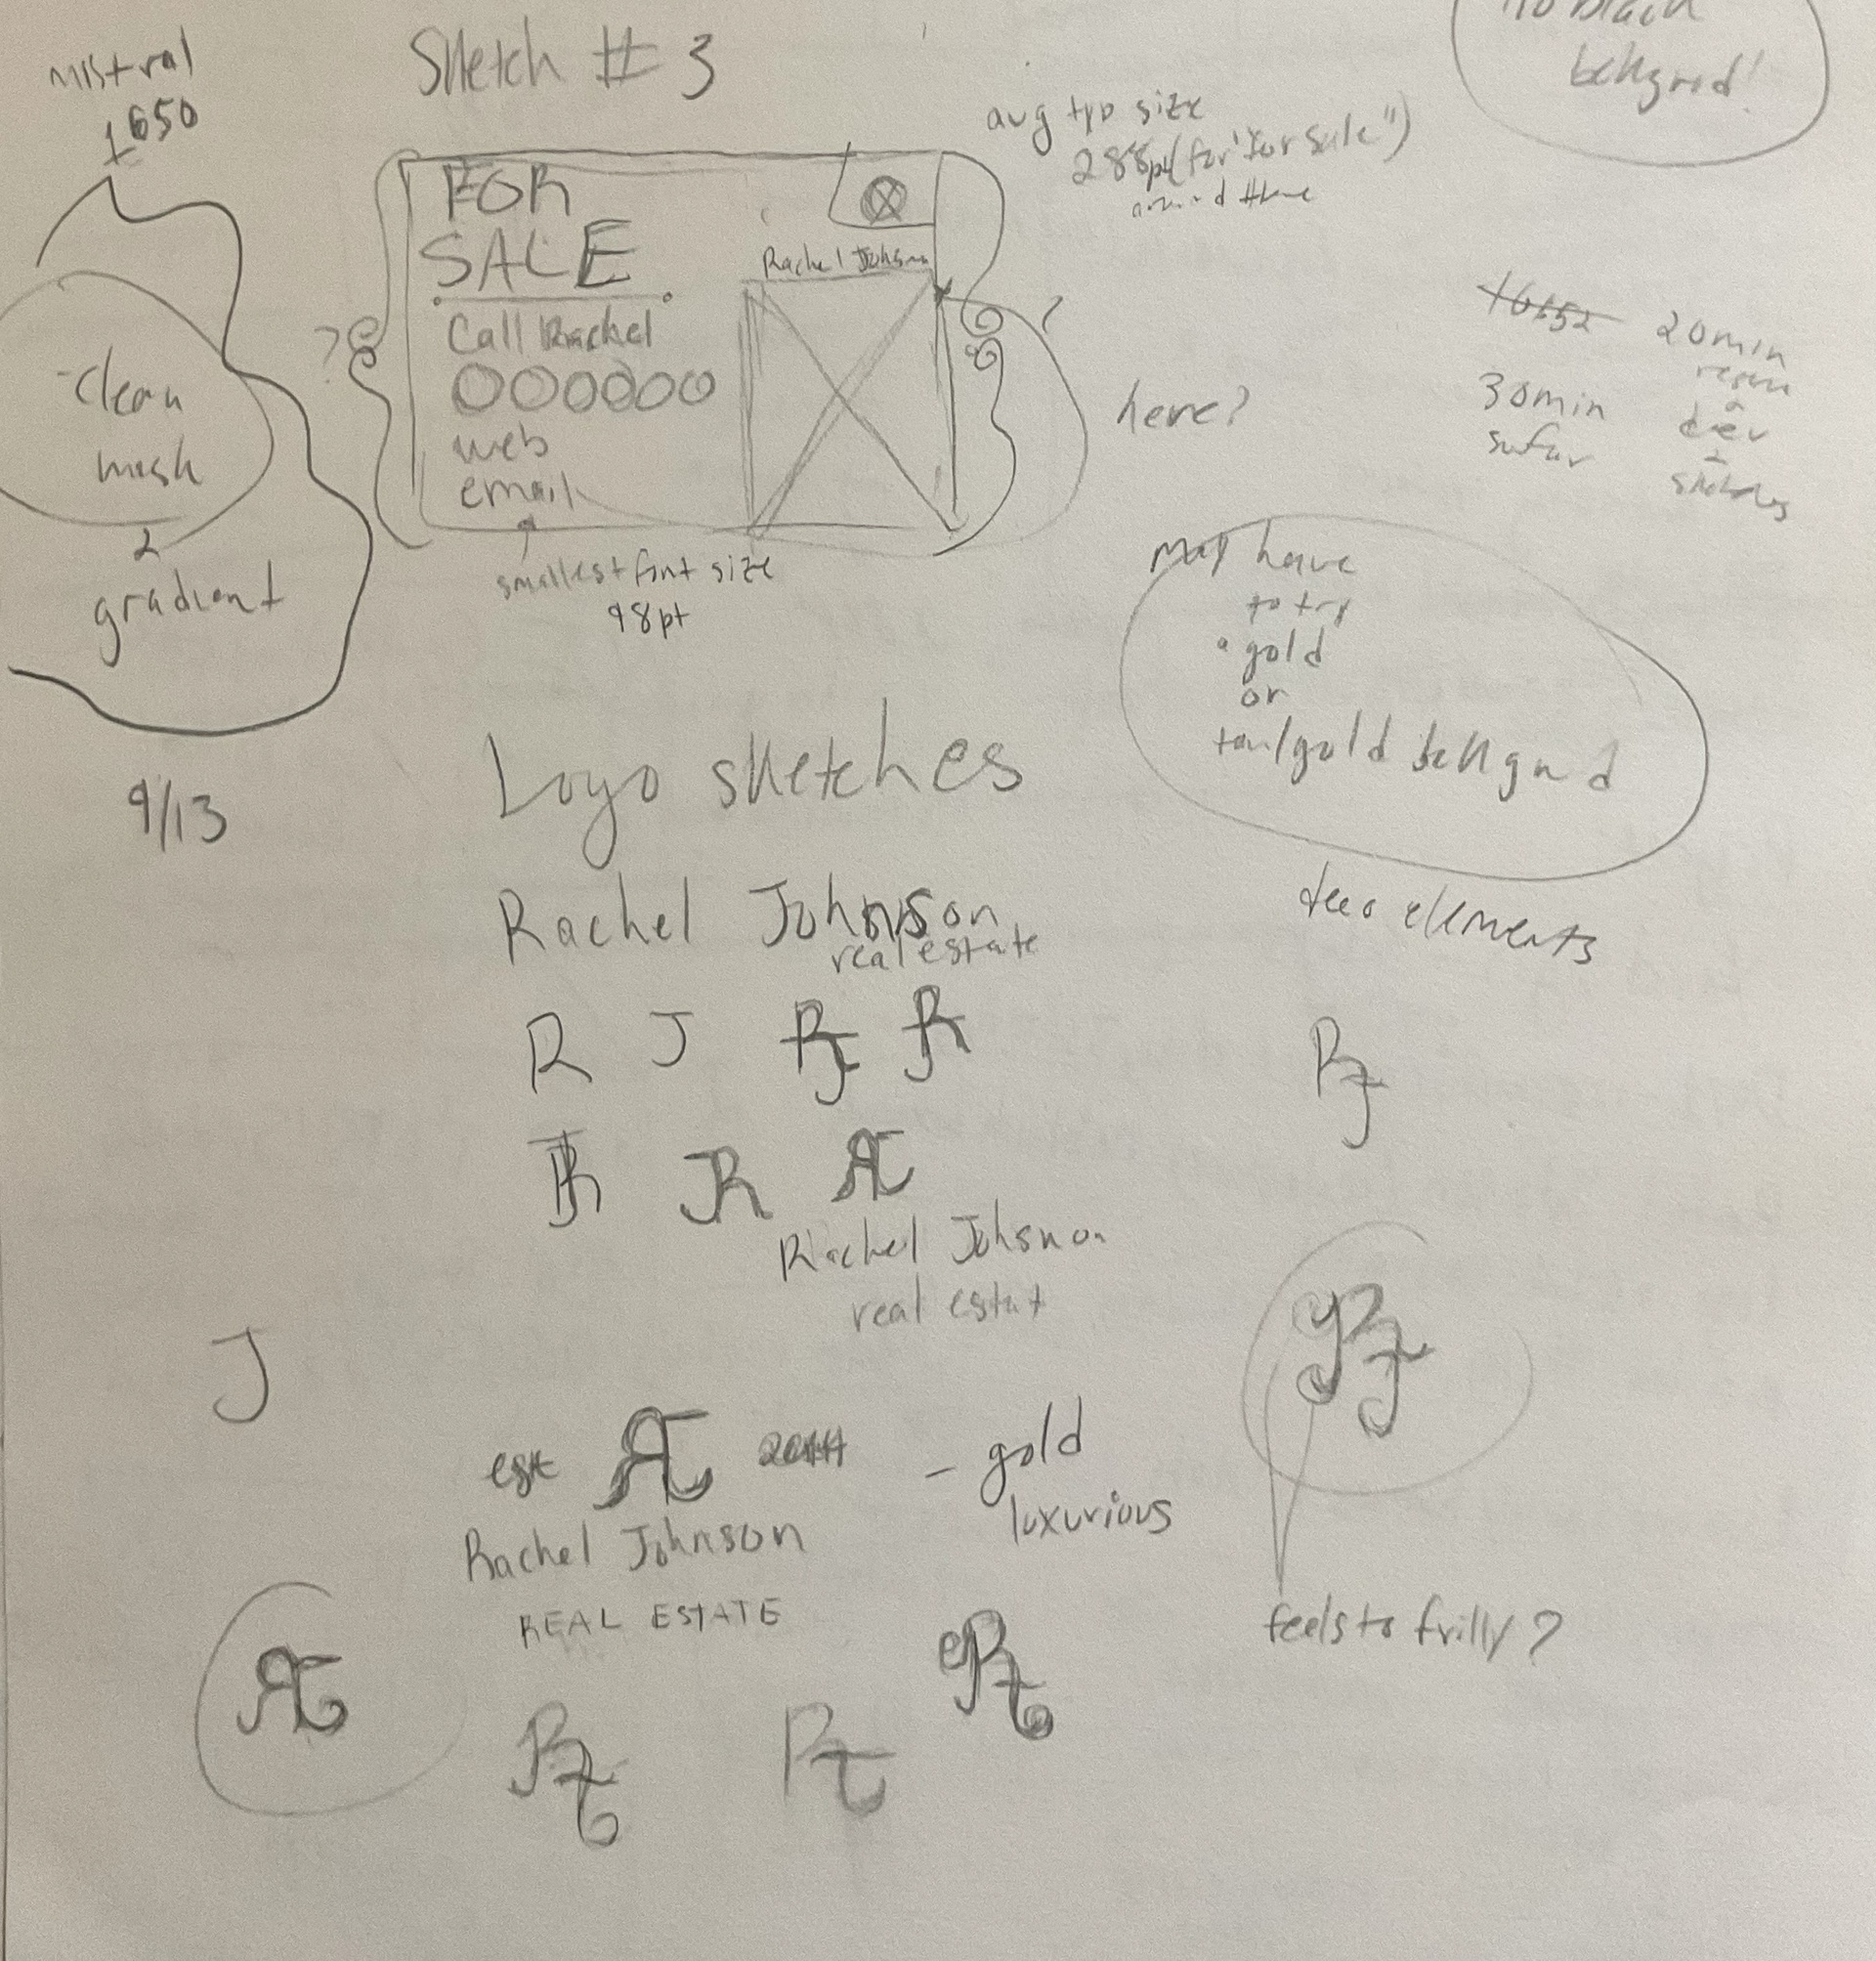 Sketch # 3
mistral
1650
no black
bckgrnd!
avg typ size
288pt (for "for sale")
around there
FOR
SALE
Rachel Johnson
Call Rachel
OOOOOO
web
email
smallest font size
98pt
?
here?
clean
mesh
2
gradient
9/13
20min
30min
sketches
may have
to try
gold
or
tan/gold bckgrnd
deco elements
Logo sketches
Rachel Johnson
real estate
R J RJ JR
JR JR RJ
RJ
Rachel Johsnon
real estat
J
RJ
est RJ
- gold
luxurious
Rachel Johnson
REAL ESTATE
feels to frilly?
RJ
RJ
RJ
RJ